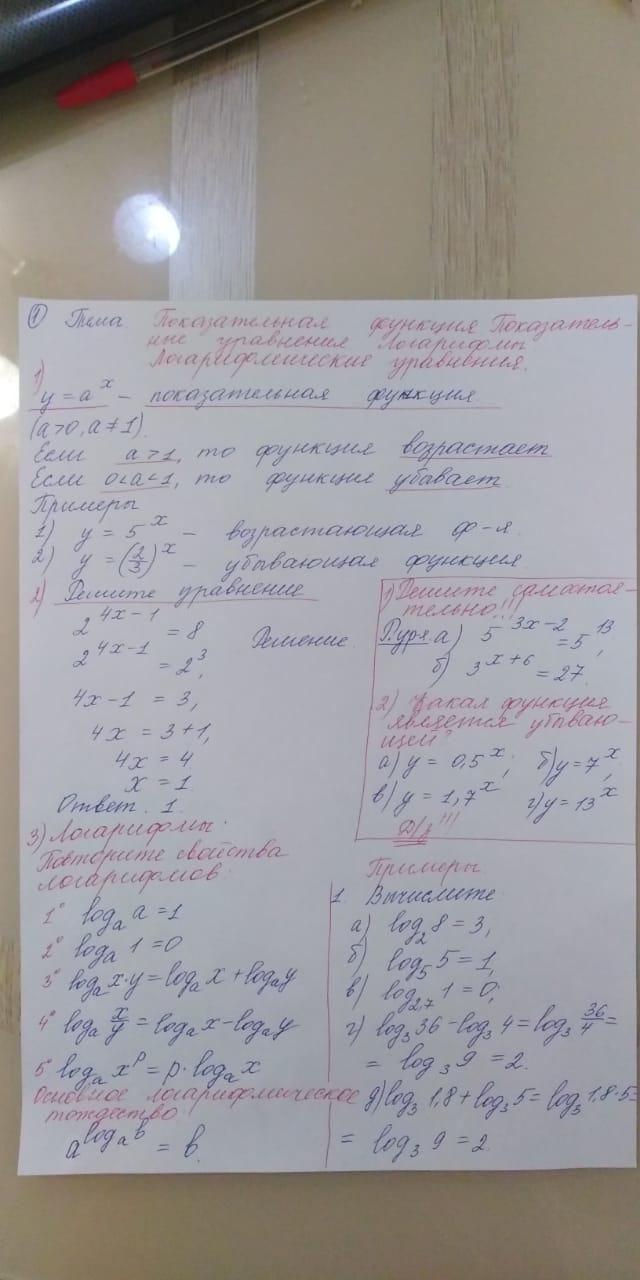 ① Тема Показательная функция Показатель-
ные уравнения Логарифмы
Логарифмические уравнения.
1)
y = a^x – показательная функция
(a>0, a≠1).
Если a>1, то функция возрастает
Если 0<a<1, то функция убывает
Примеры
1) y = 5^x – возрастающая ф-я.
2) y = (2/3)^x – убывающая функция
2) Решите уравнение
2^(4x-1) = 8 Решение.
2^(4x-1) = 2^3,
4x-1 = 3,
4x = 3+1,
4x = 4
x = 1.
Ответ. 1.
1) Решите самостоя-
тельно!!!
а) 5^(3x-2) = 5^13,
б) 3^(x+6) = 27.
2) Какая функция
является убываю-
щей?
а) y = 0,5^x; б) y = 7^x;
в) y = 1,7^x г) y = 13^x
Д/з!!!
3) Логарифмы.
Повторите свойства
логарифмов:
1° log_a a = 1
2° log_a 1 = 0
3° log_a x·y = log_a x + log_a y
4° log_a x/y = log_a x - log_a y
5° log_a x^p = p·log_a x
Основное логарифмическое
тождество
a^(log_a b) = b.
Примеры
1. Вычислите
а) log_2 8 = 3,
б) log_5 5 = 1,
в) log_2,7 1 = 0;
г) log_3 36 - log_3 4 = log_3 36/4 =
= log_3 9 = 2.
д) log_3 1,8 + log_3 5 = log_3 1,8·5 =
= log_3 9 = 2.